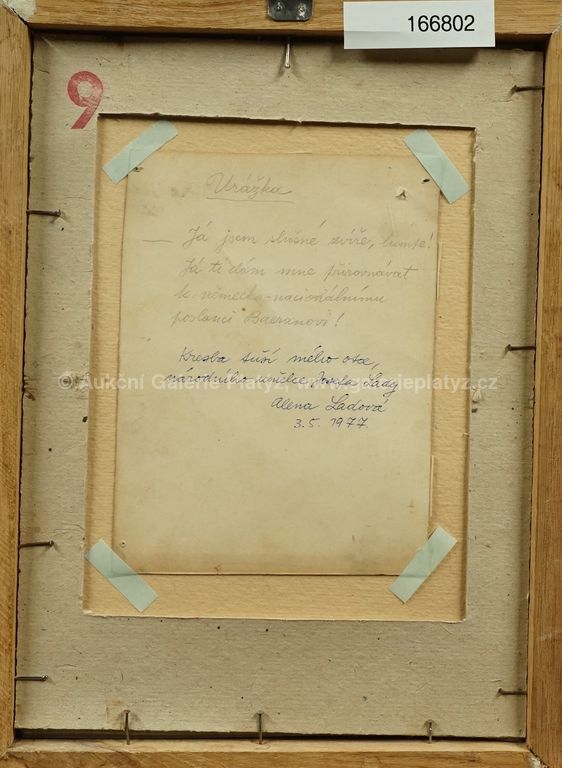 166802
9
Urážka
— Já jsem slušné zvíře, lumpe!
Já ti dám mne přirovnávat
k německo-nacionálnímu
poslanci Baeranovi!
Kresba tuší mého otce,
národního umělce Josefa Lady
Alena Ladová
3.5. 1977.
© Aukční Galerie Platýz, www.galerieplatyz.cz